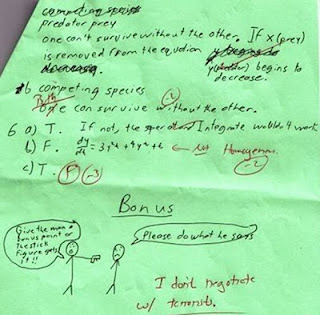 competing species
predator prey
one can't survive without the other. If x (prey)
is removed from the equation y begins to
decrease. (predator) begins to
decrease.
b competing species
Both
One can survive without the other.
6 a) T. If not, the operation Integrate wouldn't work
b) F. dy/dt = 3y²t + 4y²t + t ← Not Homogenous.
-2
c) T. F -3
Bonus
Give the man a
bonus point or
the stick
figure gets
it!!
Please do what he says
I don't negotiate
w/ terrorists.